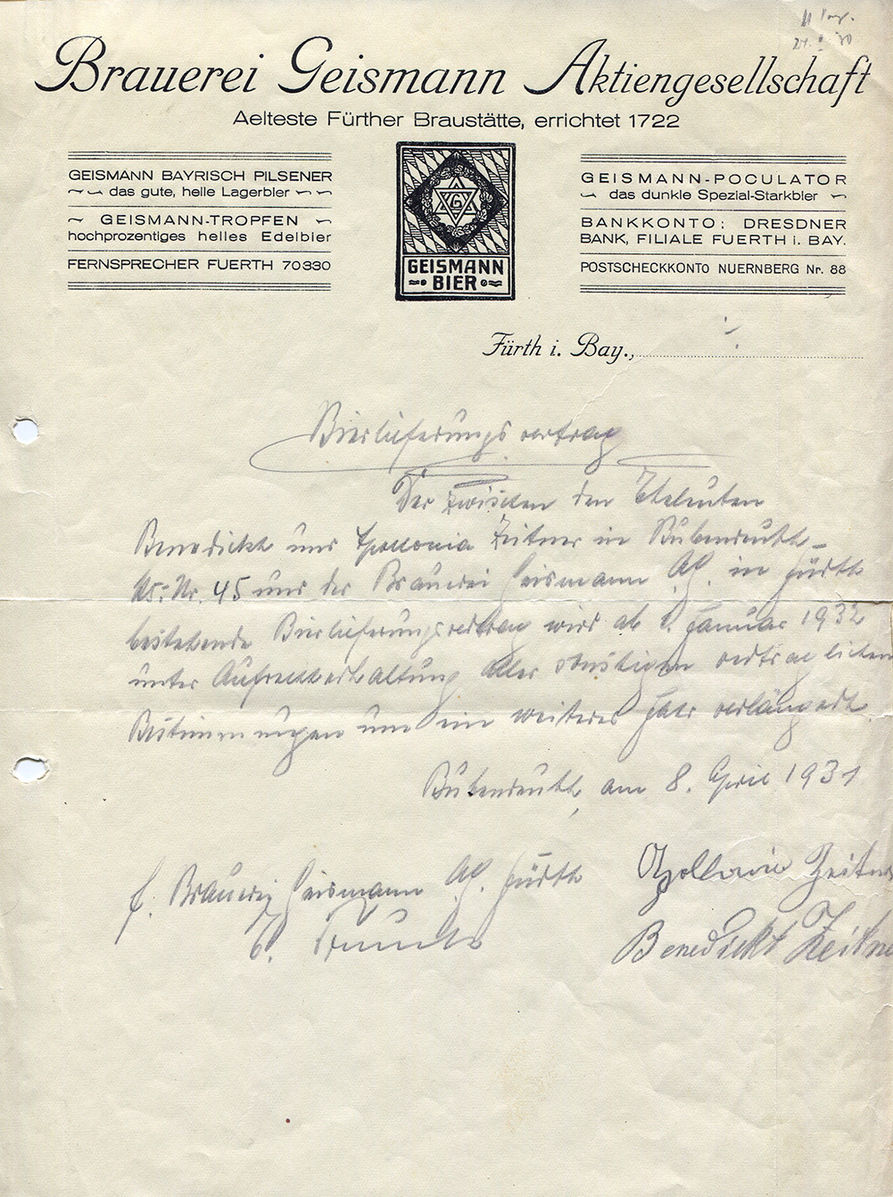 Brauerei Geismann Aktiengesellschaft
Aelteste Fürther Braustätte, errichtet 1722
GEISMANN BAYRISCH PILSENER
das gute, helle Lagerbier
GEISMANN-TROPFEN
hochprozentiges helles Edelbier
FERNSPRECHER FUERTH 70330
G
GEISMANN
BIER
GEISMANN-POCULATOR
das dunkle Spezial-Starkbier
BANKKONTO: DRESDNER
BANK, FILIALE FUERTH i. BAY.
POSTSCHECKKONTO NUERNBERG Nr. 88
Fürth i. Bay.,
Bierlieferungsvertrag
Der zwischen den Eheleuten
Benedickt und Apollonia Zeitner in Bubenreuth
Hs.-Nr. 45 und der Brauerei Geismann AG. in Fürth
bestehende Bierlieferungsvertrag wird ab 1. Januar 1932
unter Aufrechterhaltung aller sonstigen vertraglichen
Bestimmungen um ein weiteres Jahr verlängert
Bubenreuth, am 8. April 1931
f. Brauerei Geismann AG. Fürth
Apollonia Zeitner
Benedickt Zeitne